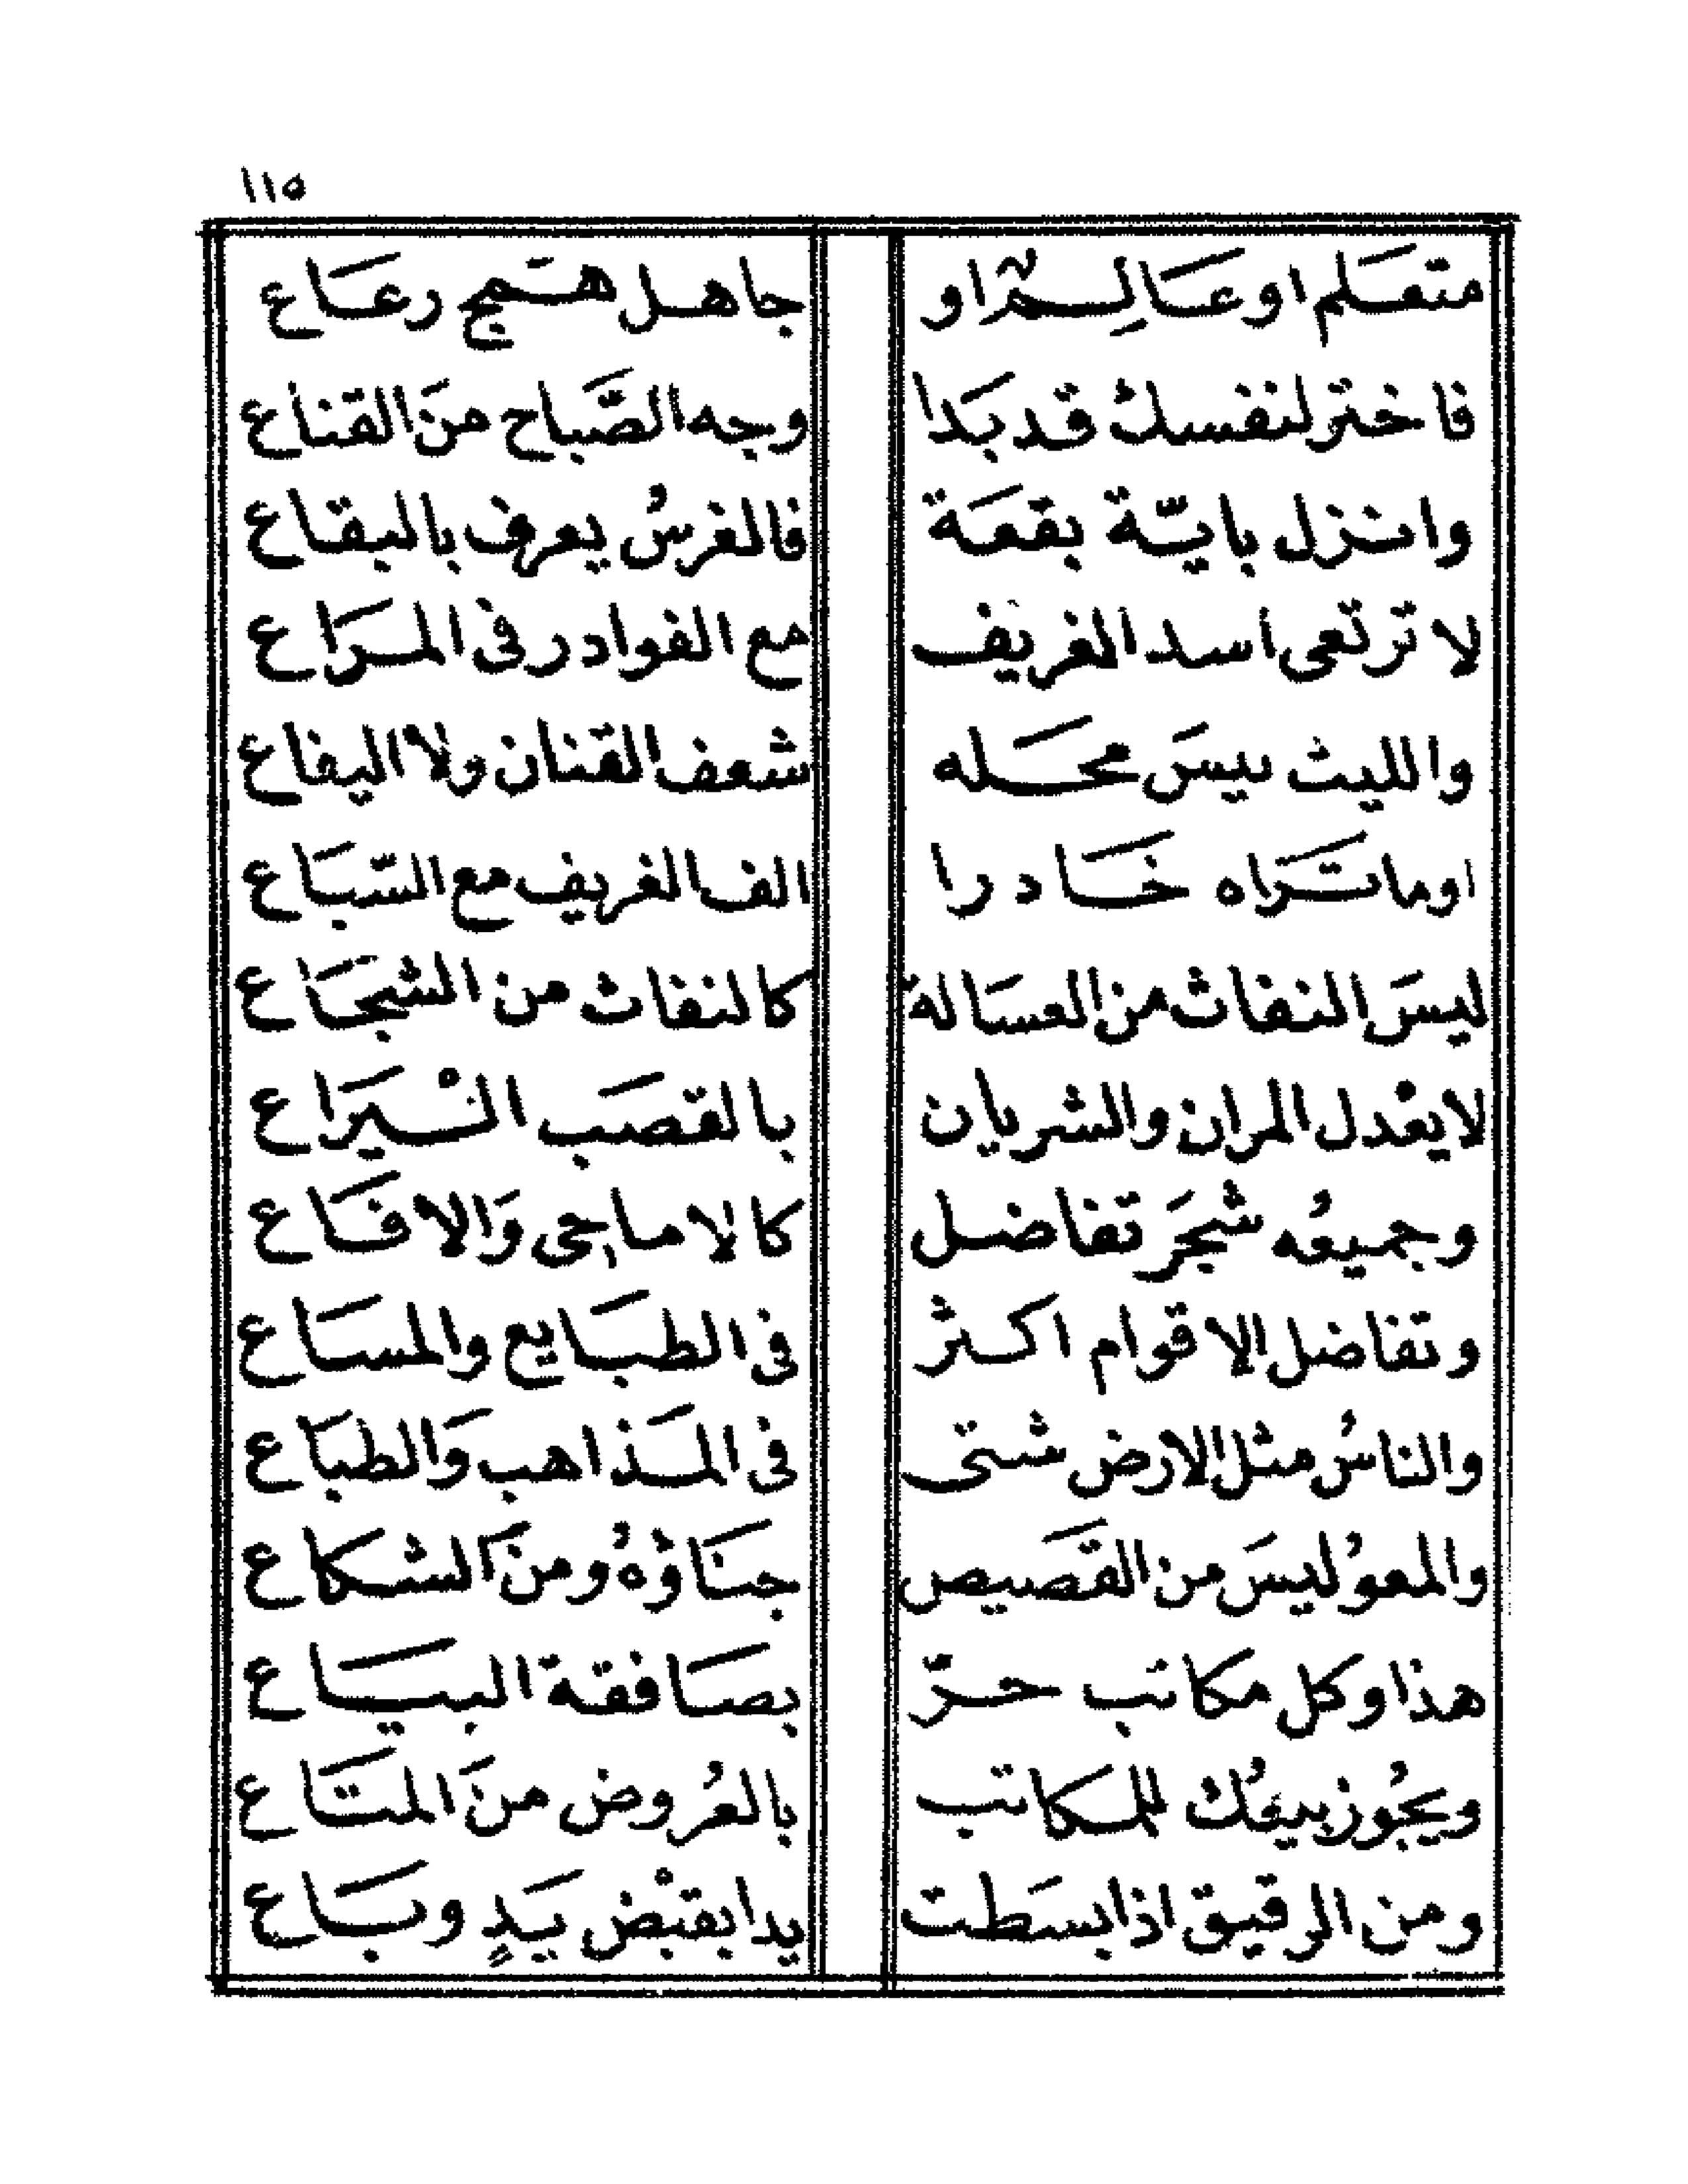 ١١٥
متعَلم او عَالِمٌ او جاهل همَج رعَاع
فاختر لنفسك قد بَدا وجه الصَّباح منَ القناع
وانزل بايّة بقعَة فالغرسُ يعرف بالبقاع
لا ترتعى اسد الغريف مع الفوادر فى المرَاع
والليث ليسَ محَله شعف القنان ولا اليفاع
اوما ترَاه خَادرا الف الغريف مع السّبَاع
ليسَ النفاث من العسَالة كالنفاث من الشجَاع
لا يعْدل المران والشريان بالقصَب اليَرَاع
وجميعُه شجَر تفاضل كالاماحى وَالافَاع
وتفاضل الاقوام اكثر فى الطبَايع والمسَاع
والناسُ مثل الارض شتى فى المَذاهب وَالطبَاع
والمعوُ ليسَ من القَصيص جنَاؤهُ ومنَ الشكاع
هذا وكل مكاتب حرّ بصَافقة البيَاع
ويجُوز بيعُك للمكاتب بالعُروض منَ المتَاع
ومن الرقيق اذا بسَطت يدا بقبْض يَدٍ وبَاع